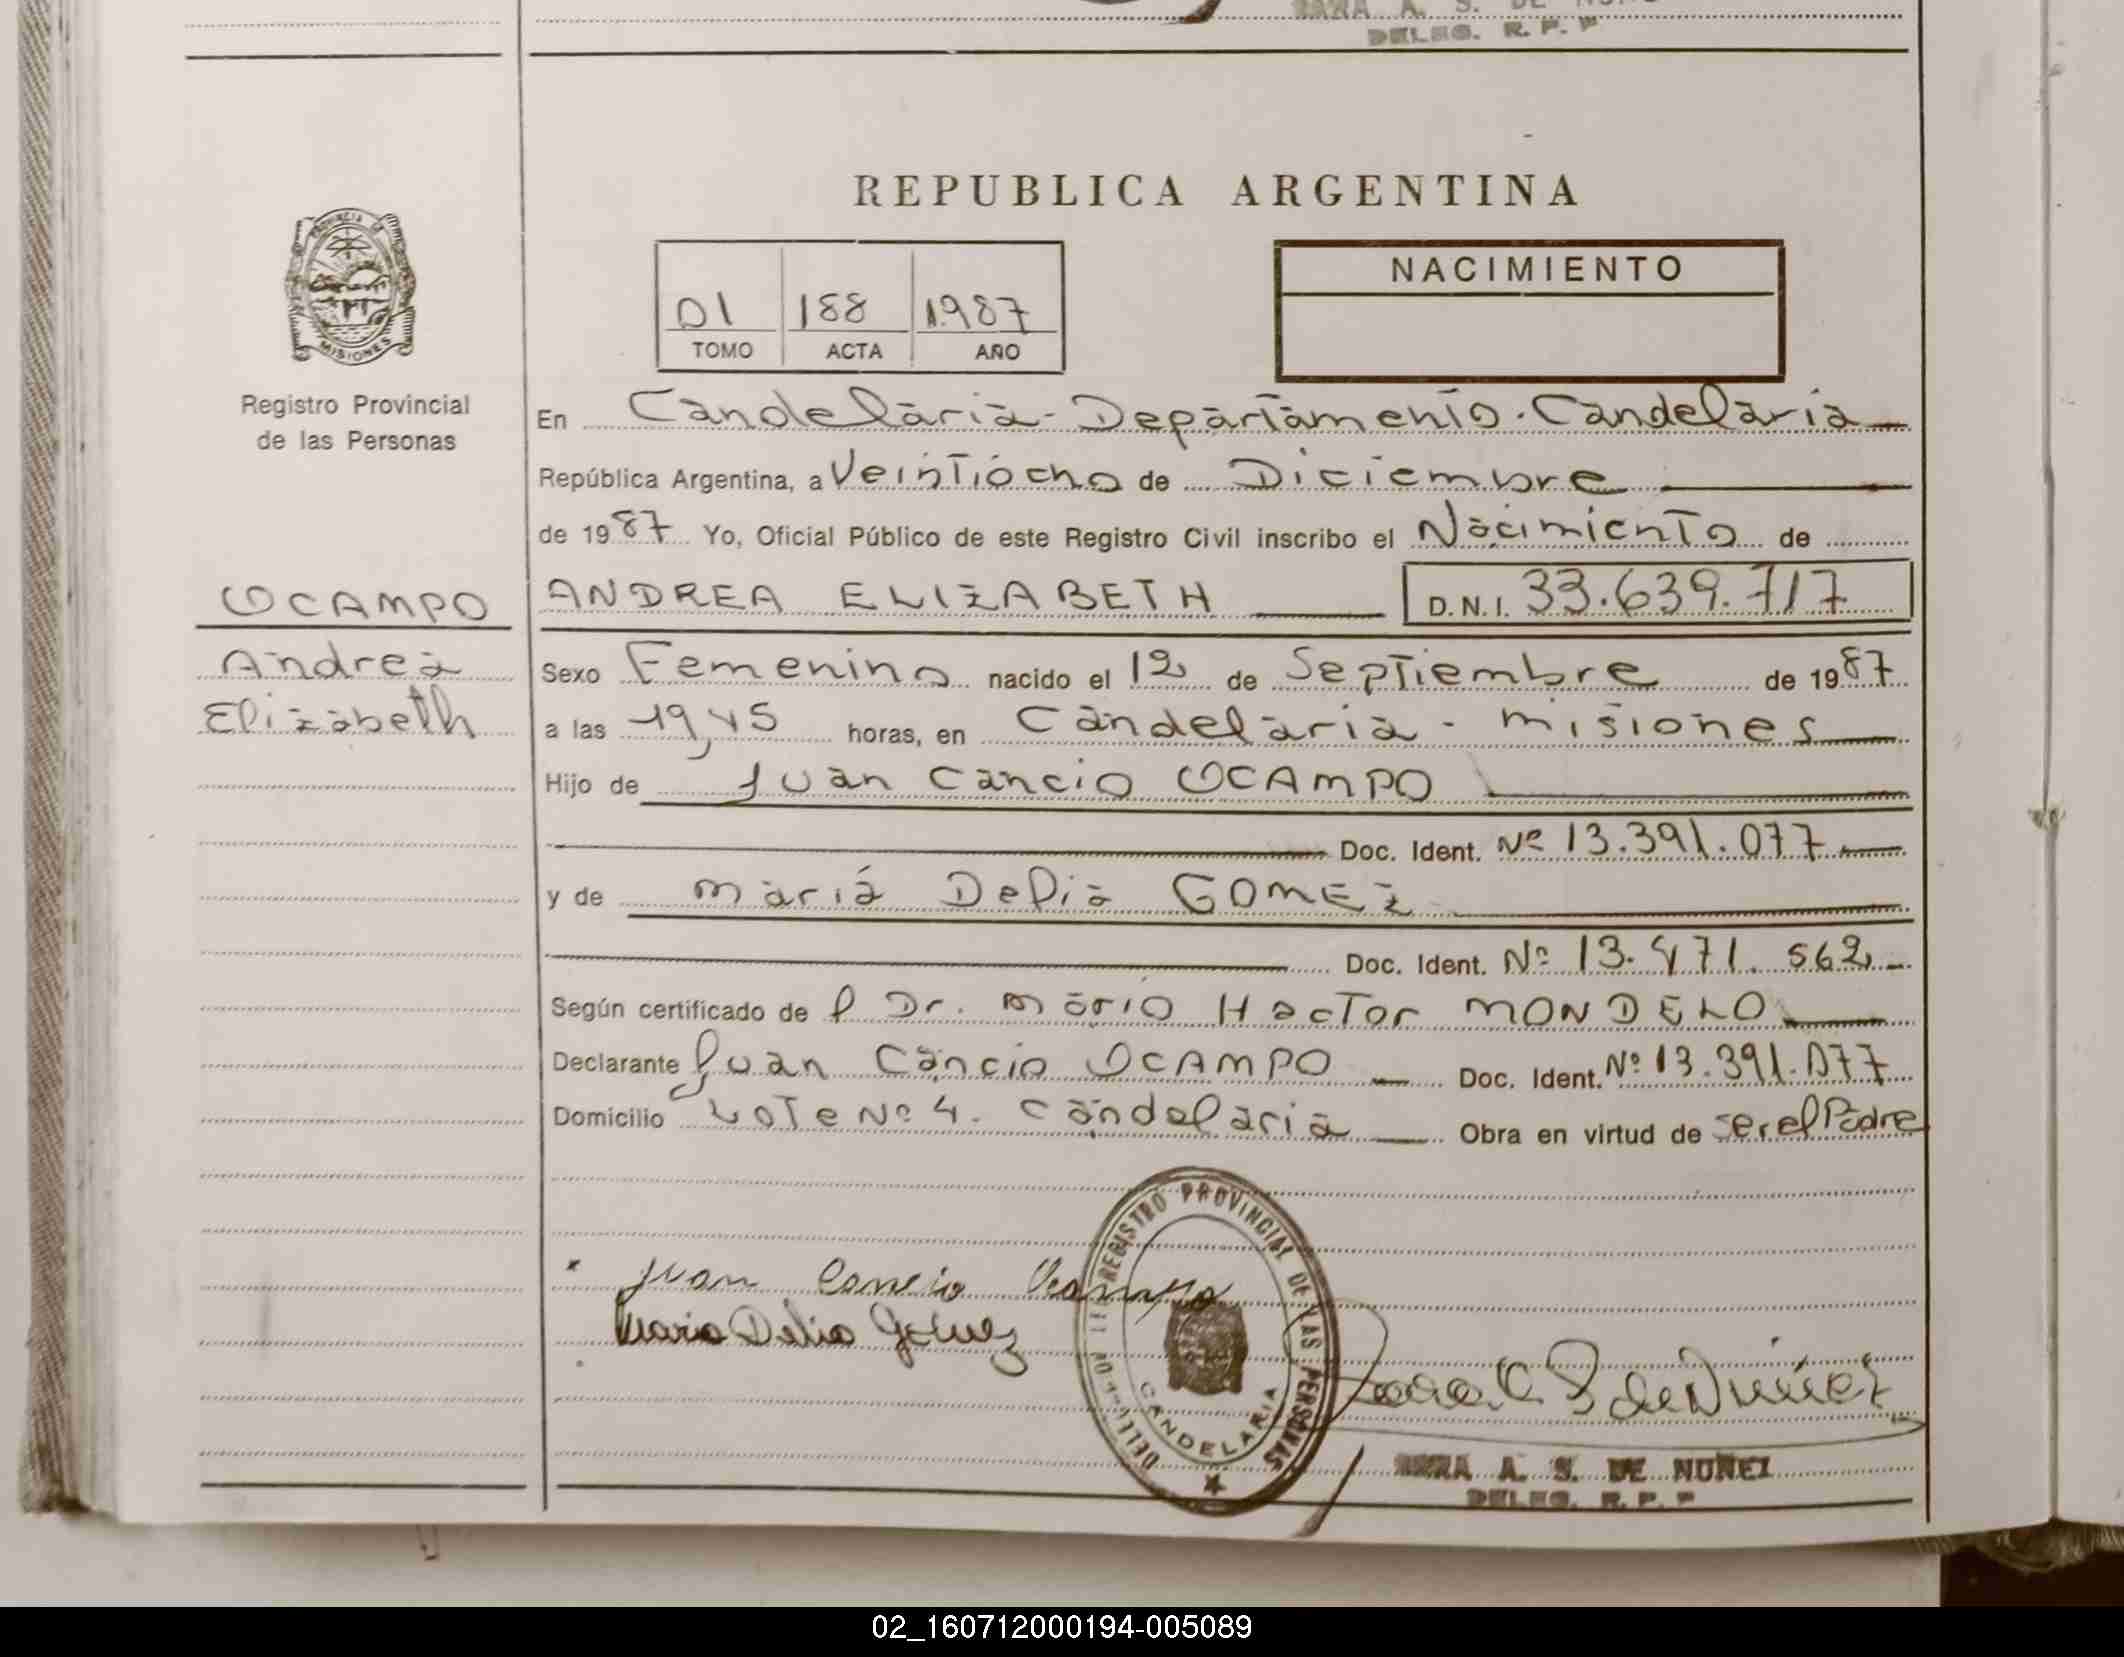 SARA A. S. DE NUÑEZ
DELEG. R. P. P
REPUBLICA ARGENTINA
PROVINCIA DE
MISIONES
Registro Provincial
de las Personas
01 188 1.987
TOMO ACTA AÑO
NACIMIENTO
En Candelaria - Departamento - Candelaria
República Argentina, a Veintiocho de Diciembre
de 1987 Yo, Oficial Público de este Registro Civil inscribo el Nacimiento de
OCAMPO
Andrea
Elizabeth
ANDREA ELIZABETH D.N.I. 33.639.717
Sexo Femenino nacido el 12 de Septiembre de 1987
a las 19,45 horas, en Candelaria - Misiones
Hijo de Juan Cancio OCAMPO
Doc. Ident. Nº 13.391.077
y de María Delia GOMEZ
Doc. Ident. Nº 13.471.562
Según certificado de l Dr. Mario Hector MONDELO
Declarante Juan Cancio OCAMPO Doc. Ident. Nº 13.391.077
Domicilio Lote Nº 4. Candelaria Obra en virtud de ser el Padre
Juan Cancio Ocampo
Maria Delia Gomez
REGISTRO PROVINCIAL DE LAS PERSONAS
CANDELARIA
Sara A. S. de Nuñez
SARA A. S. DE NUÑEZ
DELEG. R. P. P
02_160712000194-005089